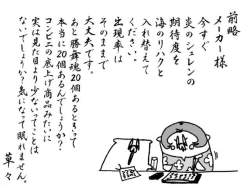 前略
メーカー様
今すぐ
炎のシェレンの
期待度を
海のリハクと
入れ替えて
ください。
出現率は
そのままで
大丈夫です。
あと勝舞魂20個あるときって
本当に20個あるんでしょうか?
コンビニの底上げ商品みたいに
実は見た目より少ないってことは
ないでしょうか?気になって眠れません。
草々